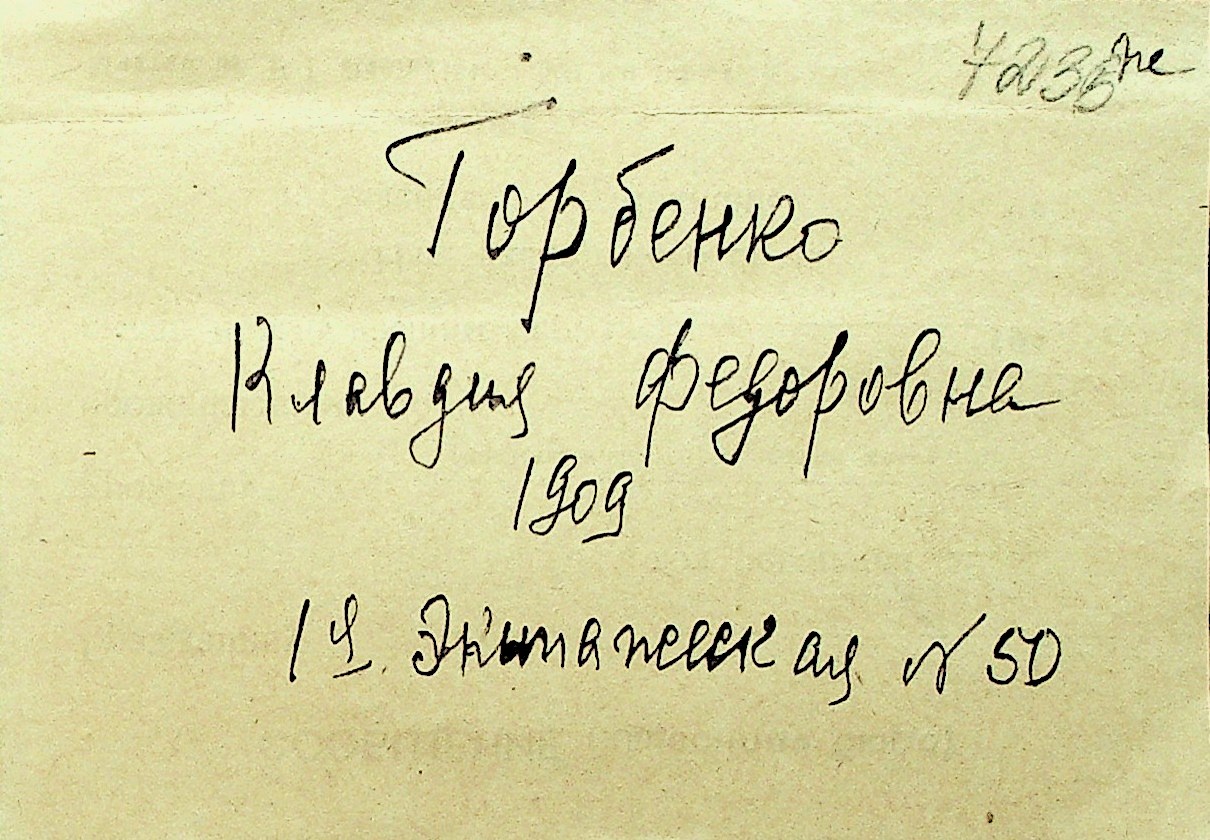 7235 же
Горбенко
Клавдия Федоровна
1909
1я Экипажеская N 50